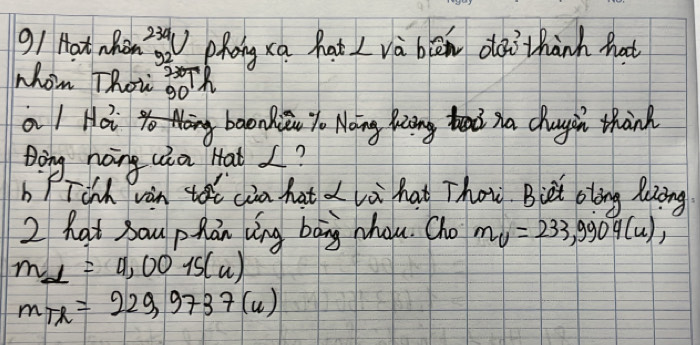 9/ Hạt nhân ²³⁴₉₂U phóng xạ hạt α và biến đổi thành hạt
nhân Thori ²³⁰₉₀Th
a/ Hỏi % Năng bao nhiêu % Năng lượng toả ra chuyển thành
Động năng của Hạt α?
b/ Tính vận tốc của hạt α và hạt Thori. Biết động lượng
2 hạt sau phản ứng bằng nhau. Cho mU = 233,9904(u),
mα = 4,0015(u)
mTh = 229,9737(u)